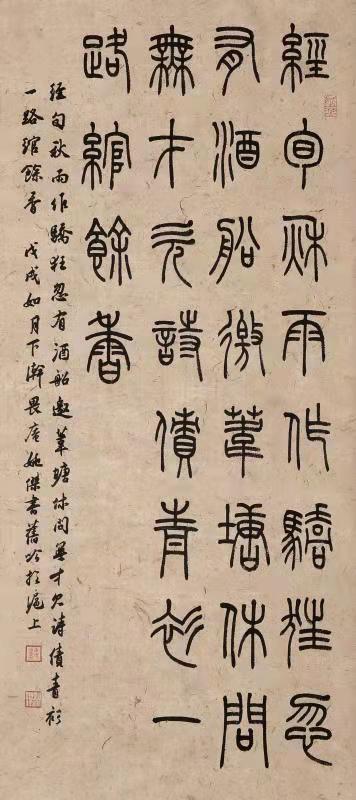 經旬秋雨作驕狂忽
有酒船邀葦塘休問
無才欠詩債青衫一
路綰餘香
經旬秋雨作驕狂忽有酒船邀葦塘休問無才欠詩債青衫
一路綰餘香 戊戌如月下澣畏庵姚傑書舊吟於滬上